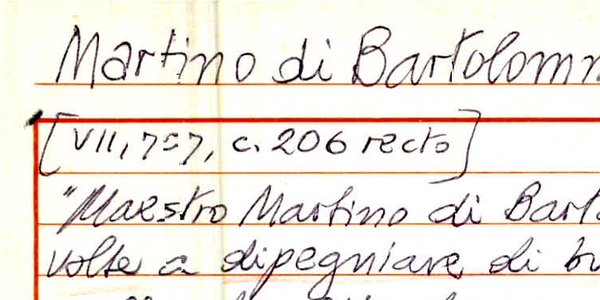 Martino di Bartolomm
[VII, 757, c. 206 recto]
"Maestro Martino di Bart
volse a dipegniare di